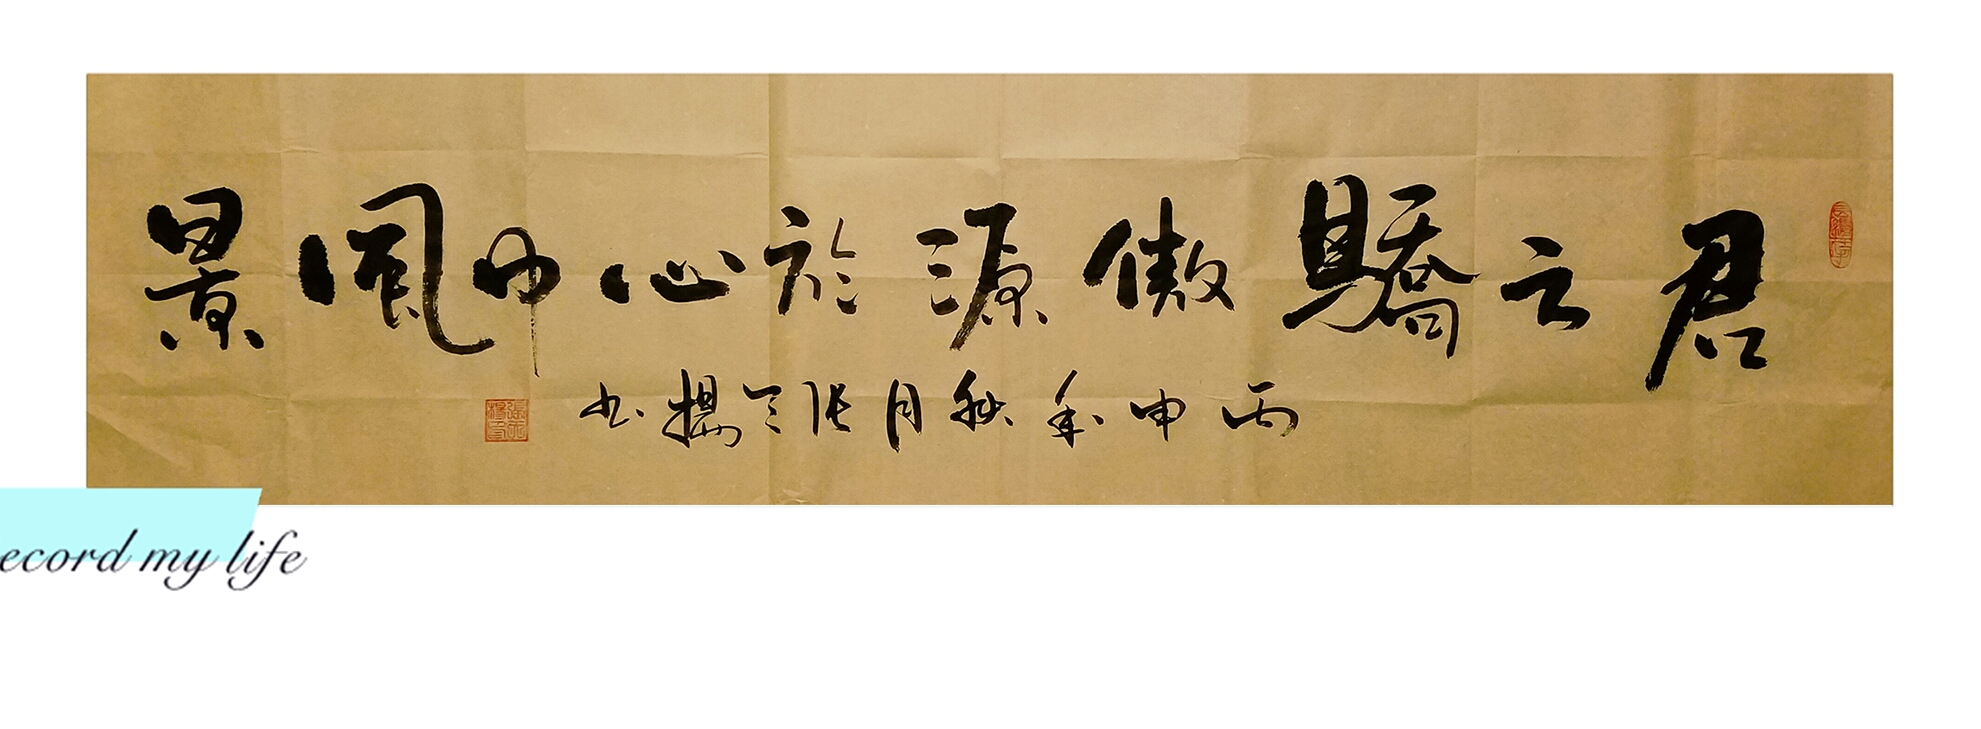 君之驕傲源於心中風景
丙申年秋月張三楊書
ecord my life